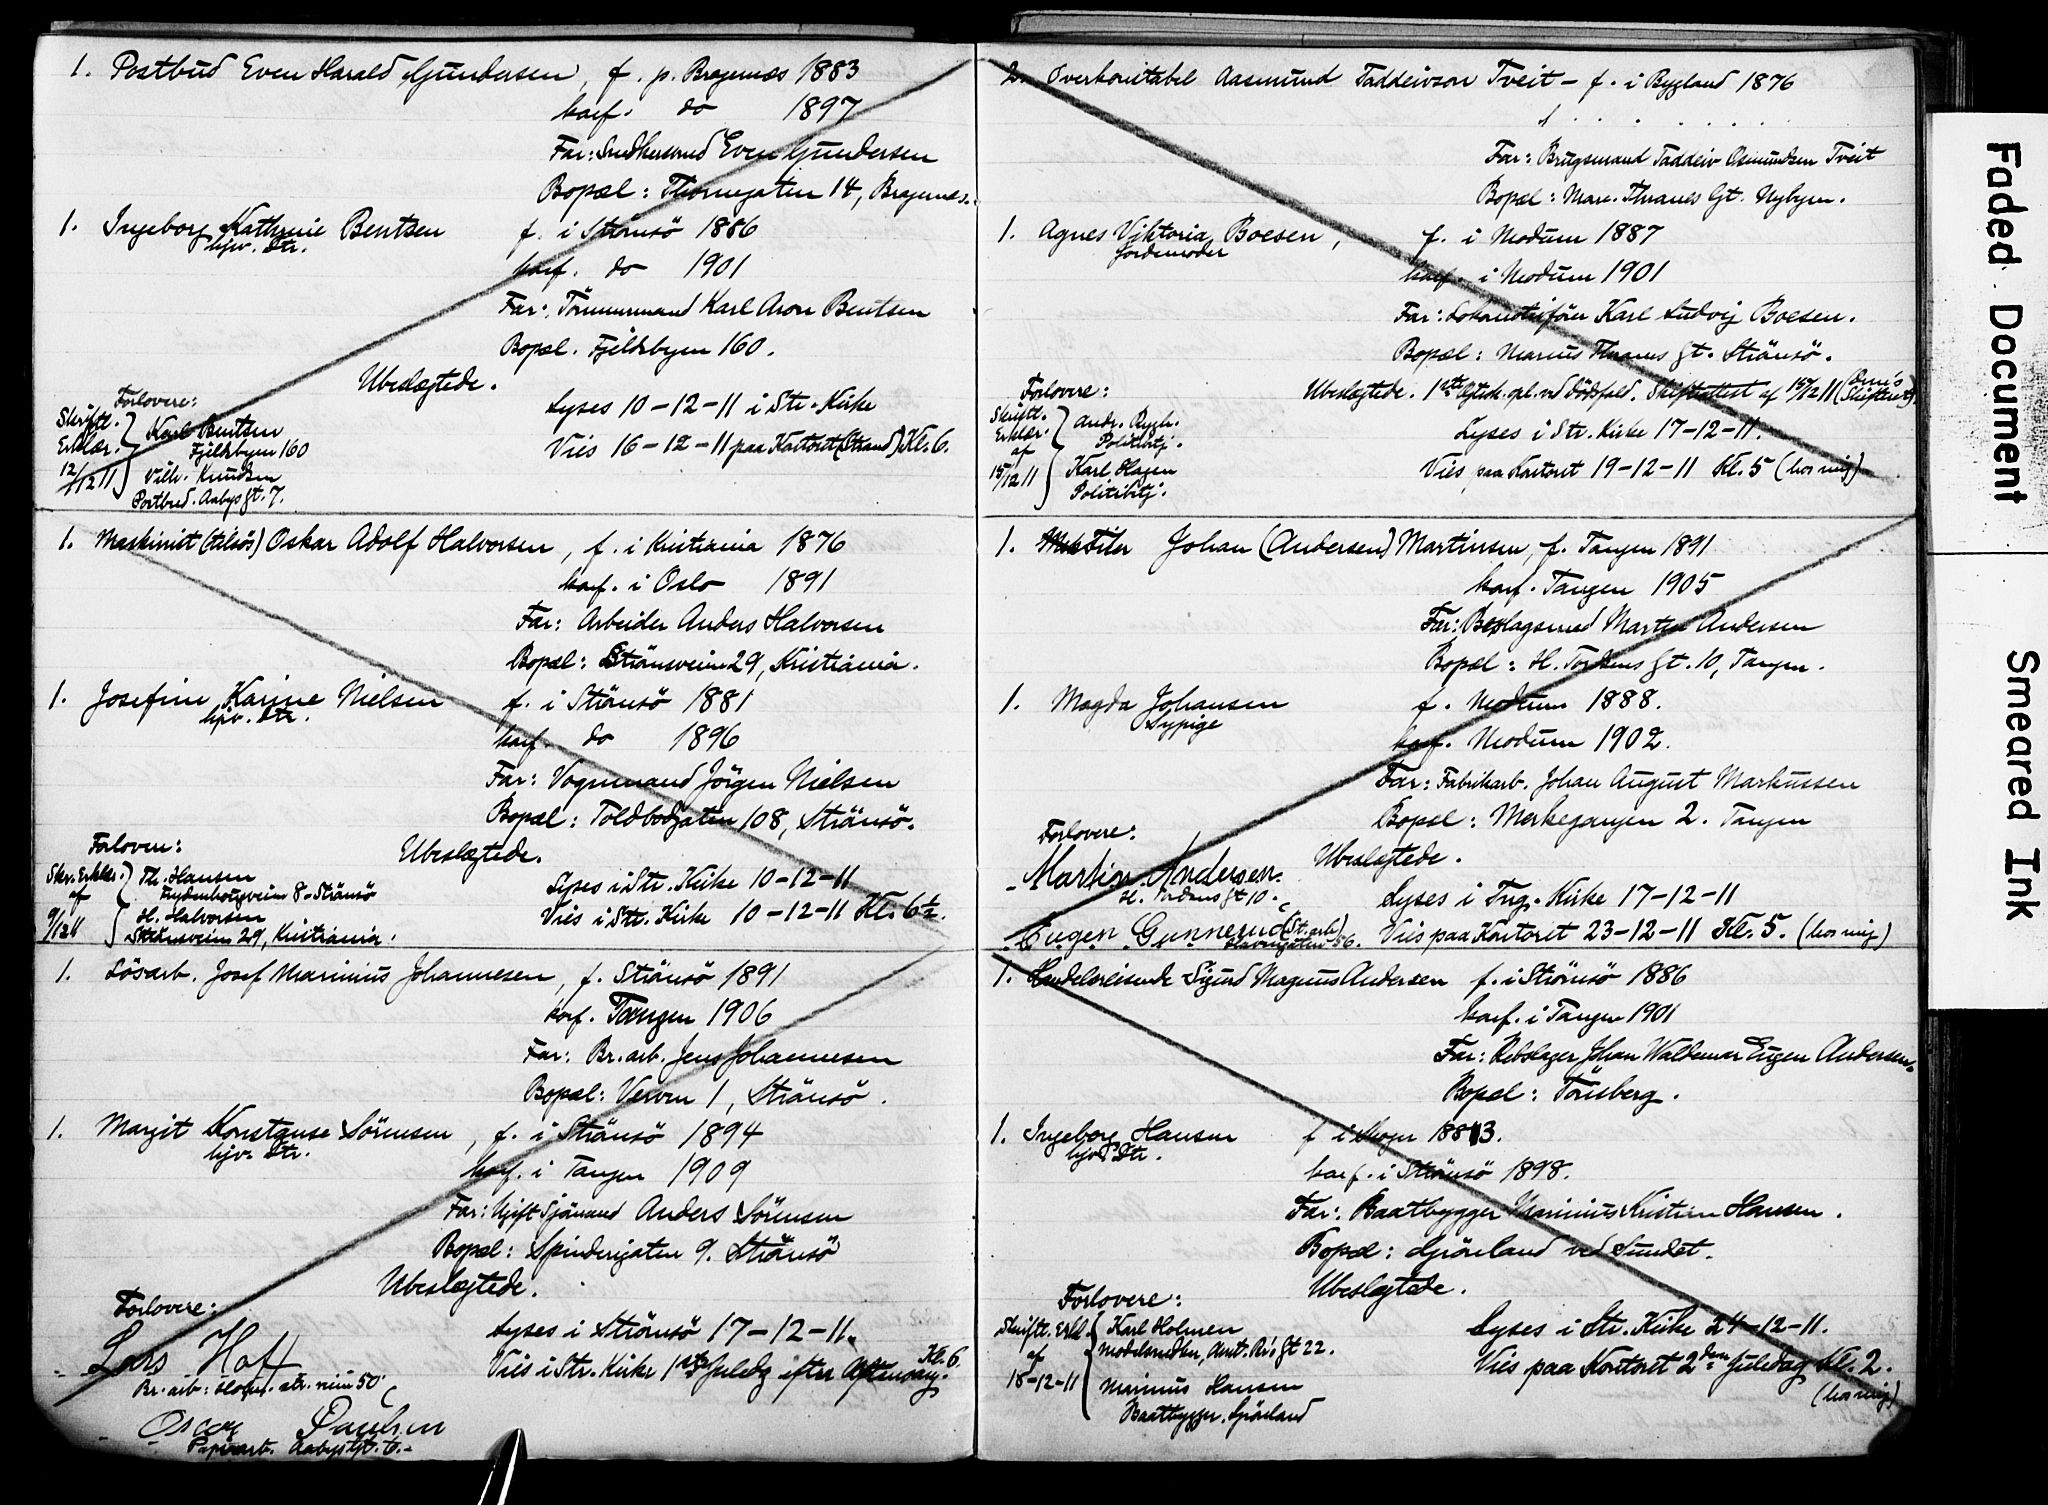 1. Postbud Even Harald Gundersen, f. p. Bragernæs 1883
konf. do 1897
Far: Snedkersvend Even Gundersen
Bopæl: Thornegaten 14, Bragernæs.
1. Ingeborg Kathrine Bentsen f. i Strömsö 1886
hjv. Str.
konf. do 1901
Far: Tömmermand Karl Aron Bentsen
Bopæl. Fjeldsbyen 160.
Ubeslægtede.
Forlovere:
Skriftl. Erklær. 12/12 11
Karl Bentsen
Fjeldsbyen 160
Vilh. Knudsen
Postbud. Aabys Gt. 7.
Lyses 10-12-11 i Str. Kirke
Vies 16-12-11 paa Kontoret (Strand) Kl. 6.
1. Maskinist (tilsös) Oskar Adolf Halvorsen, f. i Kristiania 1876
konf. i Oslo 1891
Far: Arbeider Anders Halvorsen
Bopæl: Strömsvein 29, Kristiania.
1. Josefine Karine Nielsen f. i Strömsö 1881
hjv. Str.
konf. do 1896
Far: Vognmand Jörgen Nielsen
Bopæl: Toldbodgaten 108, Strömsö.
Forlovere:
Ubeslægtede.
Skr. Erklær. af 9/12 11
Th. Hansen
Frydenborgvein 8 - Strömsö
H. Halvorsen
Strömsveien 29, Kristiania.
Lyses i Str. Kirke 10-12-11
Vies i Str. Kirke 10-12-11 Kl. 6½.
1. Lösarb. Josef Marinius Johannesen, f. Strömsö 1891
konf. Tangen 1906
Far: Br. arb. Jens Johannesen
Bopæl: Verven 1, Strömsö.
1. Margit Konstanse Sörensen, f. i Strömsö 1894
hjv. Str.
konf. i Tangen 1909
Far: Ugift Sjömand Anders Sörensen
Bopæl: Spinderigaten 9. Strömsö
Ubeslægtede.
Forlovere:
Lyses i Strömsö 17-12-11.
Lars Hoff
Vies i Str. Kirke 1ste Juledg efter Aftensang. Kl. 6.
Br. arb.
Oscar Paulsen
Papirarb. Aabys Gt. 6.
2. Overkonstabel Aasmund Taddeivson Tveit - f. i Bygland 1876
Far: Brugsmand Taddeiv Osmundsen Tveit
Bopæl: Marc. Thranes Gt. Nybyen.
1. Agnes Viktoria Boesen, f. i Modum 1887
Jordemoder
konf. i Modum 1901
Far: Lokomotivförer Karl Ludvig Boesen.
Bopæl: Marcus Thranes Gt. Strömsö.
Forlovere:
Ubeslægtede. 1ste Ægtesk. opl. ved Dödsfald. Skifteattest af 15/12 11 (Skifteret)
Skriftl. Erklær. af 15/12 11
Andr. Bygh.
Politibtj.
Karl Hagen
Politibtj.
Lyses i Str. Kirke 17-12-11.
Vies paa Kontoret 19-12-11 Kl. 5 (hos mig)
1. Filer Johan (Andersen) Martinsen, f. Tangen 1891
konf. Tangen 1905
Far: Beslagsmed Martin Andersen
Bopæl: H. Tordens Gt. 10, Tangen.
1. Magda Johansen f. Modum 1888.
Sypige
konf. Modum 1902.
Far: Fabrikarb. Johan August Markussen
Bopæl: Merkegangen 2. Tangen
Forlovere:
Ubeslægtede.
Martin Andersen.
H. Tordens Gt 10.
Lyses i Tng. Kirke 17-12-11
Eugen Gunnerud (St. arb)
Havnegaten 56.
Vies paa Kontoret 23-12-11 Kl. 5. (hos mig)
1. Handelsreisende Sigurd Magnus Andersen f. i Strömsö 1886
konf. i Tangen 1901
Far: Rebslager Johan Waldemar Eugen Andersen.
Bopæl: Tönsberg.
1. Ingeborg Hansen f. i Skoger 1883.
hjv. Str.
konf. i Strömsö 1898.
Far: Baatbygger Marinius Kristian Hansen.
Bopæl: Grönland ved Sundet.
Ubeslægtede.
Forlovere:
Skriftl. Erkl. af 15-12-11
Karl Holmen
Modelsnedker, Amt. Ri. Gt 22.
Marinius Hansen
Baatbygger. Grönland
Lyses i Str. Kirke 24-12-11.
Vies paa Kontoret 2den Juledag Kl. 2.
(hos mig)
Faded Document
Smeared Ink